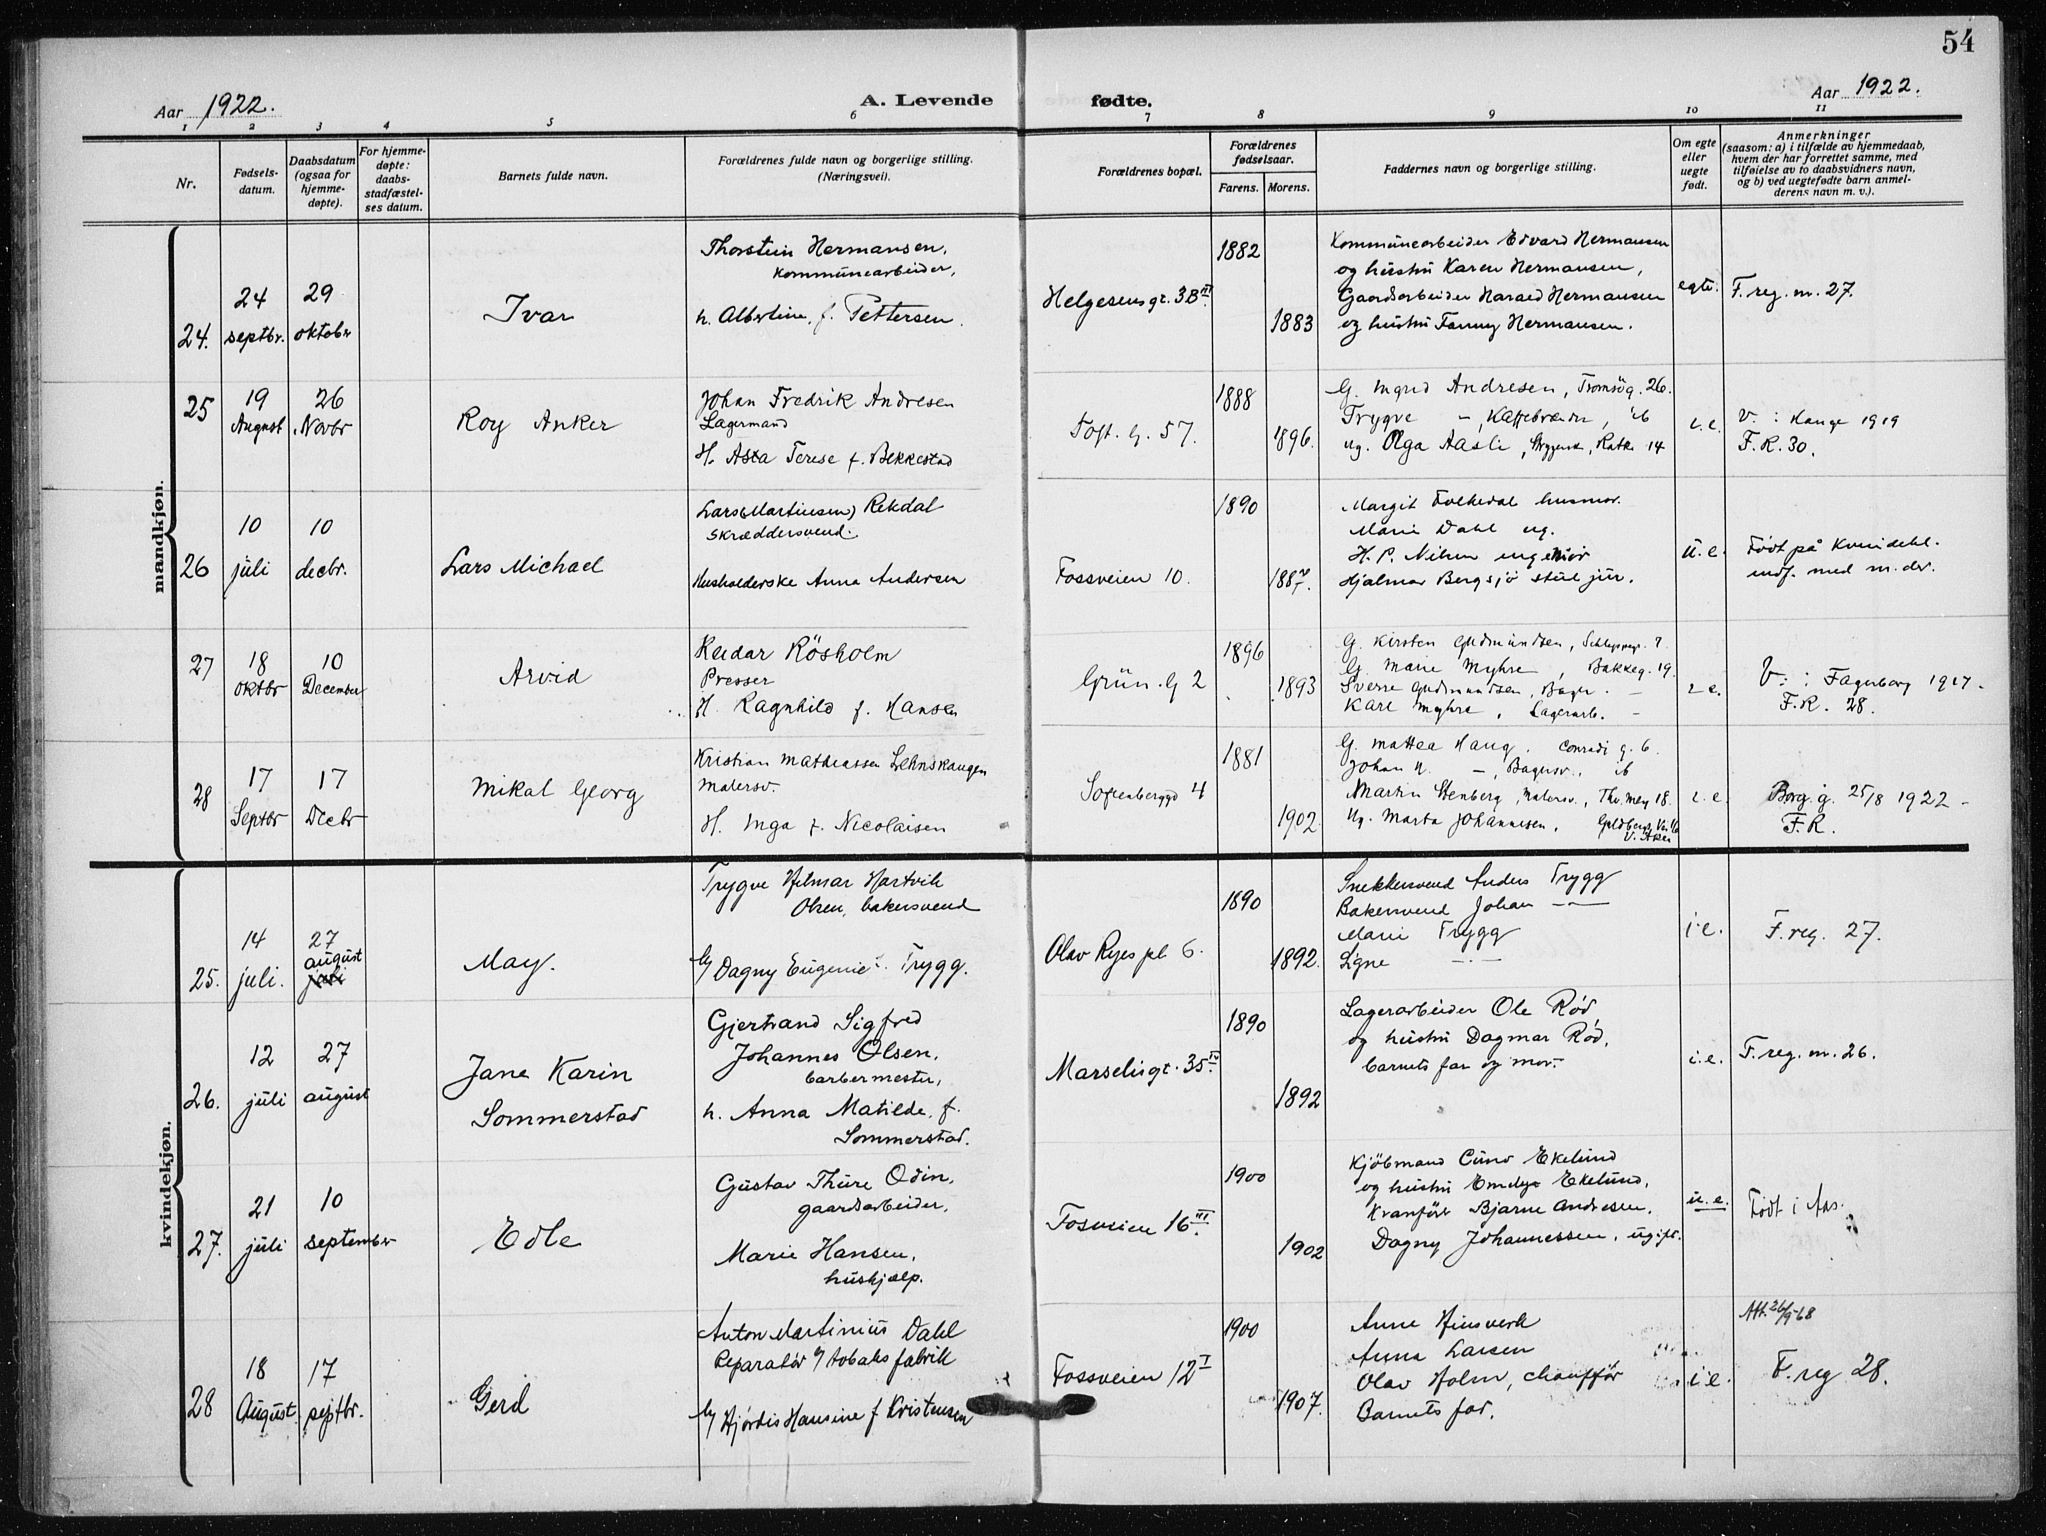 54
Aar 1922.
A. Levende fødte.
Aar 1922.
1 2 3 4 5 6 7 8 9 10 11
Nr.
Fødsels-
datum.
Daabsdatum
(ogsaa for
hjemme-
døpte).
For hjemme-
døpte:
daabs-
stadfæstel-
ses datum.
Barnets fulde navn.
Forældrenes fulde navn og borgerlige stilling.
(Næringsvei).
Forældrenes bopæl.
Forældrenes
fødselsaar.
Farens. Morens.
Faddernes navn og borgerlige stilling.
Om egte
eller
uegte
født.
Anmerkninger
(saasom: a) i tilfælde av hjemmedaab,
hvem der har forrettet samme, med
tilføielse av to daabsvidners navn,
og b) ved uegtefødte barn anmel-
derens navn m. v.).
mandkjøn.
24.
24
septbr.
29
oktober
Ivar
Thorstein Hermansen,
kommunearbeider,
h. Albertine, f. Pettersen.
Helgesensgt. 3B III
1882
1883
Kommunearbeider Edvard Hermansen
og hustru Karen Hermansen,
Gaardsarbeider Harald Hermansen
og hustru Fanny Hermansen.
egte.
F. reg. m. 27.
25
19
August
26
Novbr
Roy Anker
Johan Fredrik Andresen
Lagermand
H. Asta Terese f. Bekkestad
Toft. g. 57.
1888
1896.
G. Ingrid Andresen, Tromsög. 26.
Trygve — , Kaffebrænder, ib
ug. Olga Aasli, Ratk. 14
i. e.
V. : 1919
F. R. 30.
26
10
juli
10
decbr.
Lars Michael
Lars (Martinsen) Rekdal
skræddersvend.
Husholderske Anna Andersen
Fossveien 10.
1890
1887.
Margit Folkedal husmor.
Marie Dahl ug.
H. P. Nilsen ingeniør
Hjalmar Bergsjö stud jur.
u. e.
Født på Kvindekl.
indf. med m. der.
27
18
oktbr
10
December
Arvid
Reidar Rösholm
Presser
H. Ragnhild f. Hansen
Grün. G 2
1896
1893
G. Kirsten Gudmundsen, 7
G. Marie Myhre, Bakkeg. 19.
Sverre Gudmundsen, Bager. —
Karl Myhre, Lagerarb. —
i. e.
V. : Fagerborg 1917.
F. R. 28.
28
17
Septbr
17
Decbr
Mikal Georg
Kristian Mathiassen Lehnskaugen
Malersv.
H. Inga f. Nicolaisen
Sofienberggd 4
1881
1902.
G. Mattea Haug. Conradi g. 6.
Johan H. —, Bagersv., ib
Martin Stenberg, Malersv., Thv. Mey 18.
Ug. Marta Johannesen,
V. Aker
i. e.
Borg. g. 25/8 1922 –
F. R.
kvindekjøn.
25.
14
juli.
27
august
juli
May.
Trygve Hilmar Hartvik
Olsen, bakersvend
h/ Dagny Eugenie f. Trygg.
Olav Ryes pl 6.
1890
1892.
Snekkersvend Anders Trygg
Bakersvend Johan —"—
Marie Trygg
Signe —"—
i. e.
F. reg. 27.
26.
12
juli
27
august
Jane Karin
Sommerstad
Gjertrand Sigfred
Johannes Olsen,
barbermester,
h. Anna Matilde, f.
Sommerstad.
Marselisgt. 35 IV
1890
1892
Lagerarbeider Ole Rød,
og hustru Dagmar Rød,
barnets far og mor.
i. e.
F. reg. m. 26.
27.
21
juli
10
september
Edle
Gustav Thure Odin,
gaardsarbeider,
Marie Hansen,
huskjælp.
Fosveien 16 III
1900
1902
Kjöbmand Cuno Ekelund
og hustru Emely Ekelund,
Kranförer Bjarne Andresen,
Dagny Johannessen, ugift.
u. e.
Født i Aas.
28
18
August.
17
septbr.
Gerd
Anton Martinius Dahl
Reparatör v/ tobaksfabrik
h/ Hjördis Hansine f Kristensen
Fossveien 12 I
1900
1907.
Anne
Anna Larsen
Olav Holm, chauffør
Barnets far.
i. e.
Att. 26/9-68
F. reg 28.